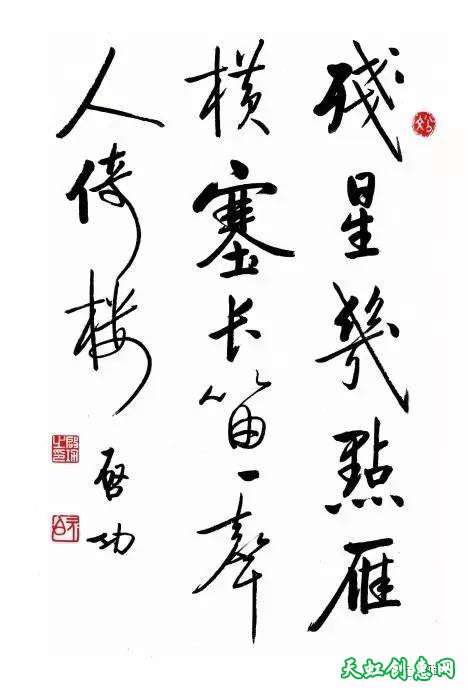 殘星幾點雁
橫塞長笛一聲
人倚樓
啓功
天虹创意网